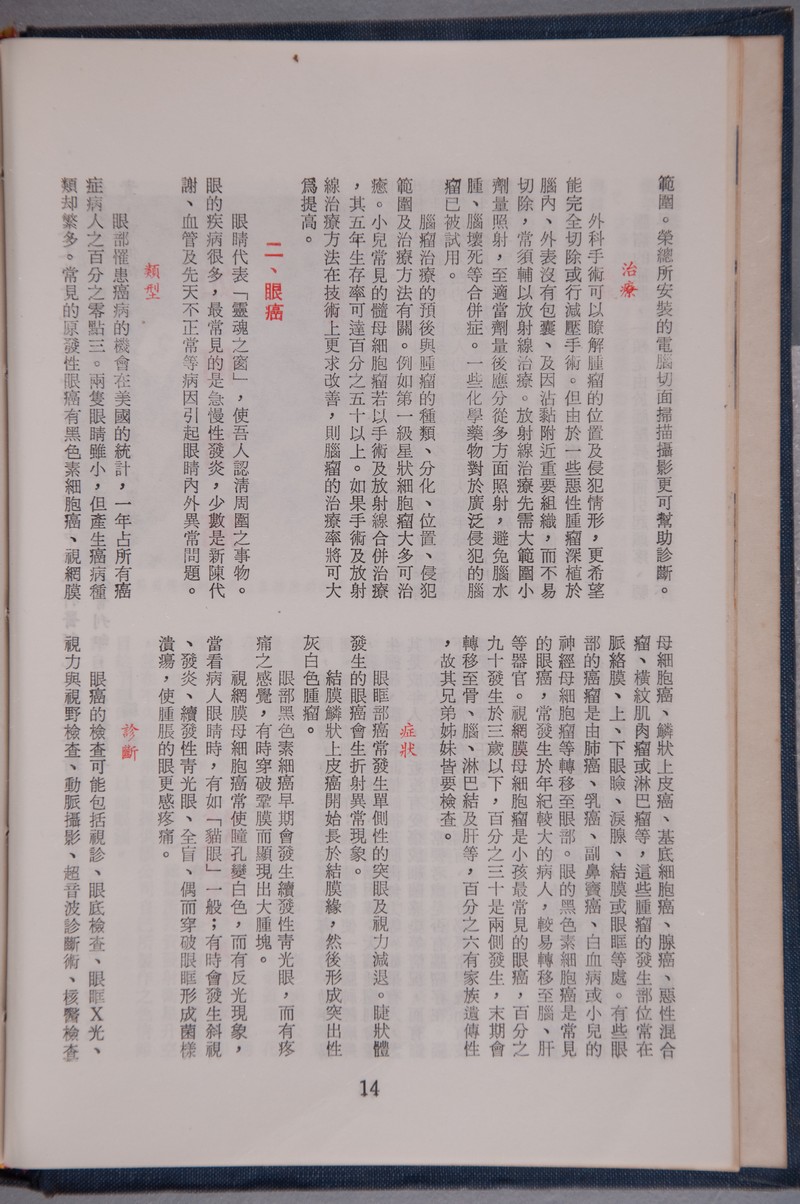 範圍。榮總所安裝的電腦切面掃描攝影更可幫助診斷。
治療
外科手術可以瞭解腫瘤的位置及侵犯情形，更希望
能完全切除或行減壓手術。但由於一些惡性腫瘤深植於
腦內、外表沒有包囊、及因沾黏附近重要組織，而不易
切除，常須輔以放射線治療。放射線治療先需大範圍小
劑量照射，至適當劑量後應分從多方面照射，避免腦水
腫、腦壞死等合併症。一些化學藥物對於廣泛侵犯的腦
瘤已被試用。
腦瘤治療的預後與腫瘤的種類、分化、位置、侵犯
範圍及治療方法有關。例如第一級星狀細胞瘤大多可治
癒。小兒常見的髓母細胞瘤若以手術及放射線合併治療
，其五年生存率可達百分之五十以上。如果手術及放射
線治療方法在技術上更求改善，則腦瘤的治療率將可大
爲提高。
二、眼癌
眼睛代表「靈魂之窗」，使吾人認清周圍之事物。
眼的疾病很多，最常見的是急慢性發炎，少數是新陳代
謝、血管及先天不正常等病因引起眼睛內外異常問題。
類型
眼部罹患癌病的機會在美國的統計，一年占所有癌
症病人之百分之零點三。兩隻眼睛雖小，但產生癌病種
類却繁多。常見的原發性眼癌有黑色素細胞癌、視網膜
母細胞癌、鱗狀上皮癌、基底細胞癌、腺癌、惡性混合
瘤、橫紋肌肉瘤或淋巴瘤等，這些腫瘤的發生部位常在
脈絡膜、上、下眼瞼、淚腺、結膜或眼眶等處。有些眼
部的癌瘤是由肺癌、乳癌、副鼻竇癌、白血病或小兒的
神經母細胞瘤等轉移至眼部。眼的黑色素細胞癌是常見
的眼癌，常發生於年紀較大的病人，較易轉移至腦、肝
等器官。視網膜母細胞瘤是小孩最常見的眼癌，百分之
九十發生於三歲以下，百分之三十是兩側發生，末期會
轉移至骨、腦、淋巴結及肝等，百分之六有家族遺傳性
，故其兄弟姊妹皆要檢查。
症狀
眼眶部癌常發生單側性的突眼及視力減退。睫狀體
發生的眼癌會生折射異常現象。
結膜鱗狀上皮癌開始長於結膜緣，然後形成突出性
灰白色腫瘤。
眼部黑色素細癌早期會發生續發性青光眼，而有疼
痛之感覺，有時穿破鞏膜而顯現出大腫塊。
視網膜母細胞癌常使瞳孔變白色，而有反光現象，
當看病人眼睛時，有如「貓眼」一般；有時會發生斜視
、發炎、續發性青光眼、全盲、偶而穿破眼眶形成菌樣
潰瘍，使腫脹的眼更感疼痛。
診斷
眼癌的檢查可能包括視診、眼底檢查、眼眶X光、
視力與視野檢查、動脈攝影、超音波診斷術、核醫檢查
14